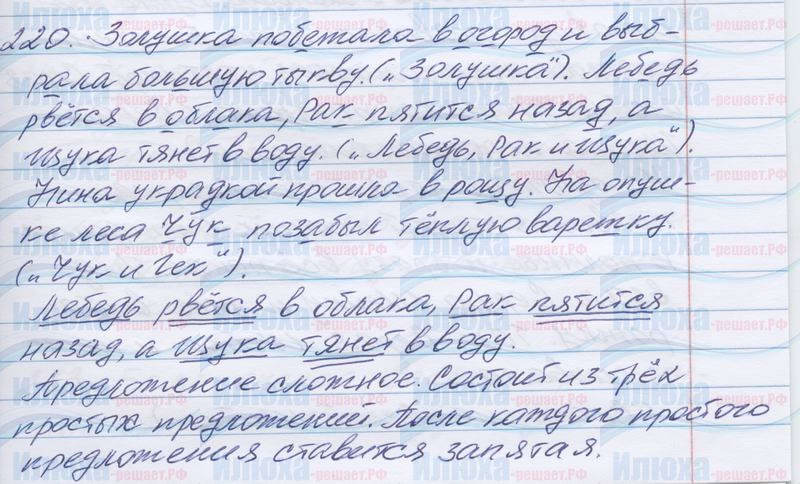 220. Золушка побежала в огород и выб-
рала большую тыкву. („Золушка“). Лебедь
рвётся в облака, Рак пятится назад, а
Щука тянет в воду. („Лебедь, Рак и Щука“).
Нина украдкой прошла в рощу. На опуш-
ке леса Чук позабыл тёплую варежку.
(„Чук и Гек“).
Лебедь рвётся в облака, Рак пятится
назад, а Щука тянет в воду.
Предложение сложное. Состоит из трёх
простых предложений. После каждого простого
предложения ставится запятая.